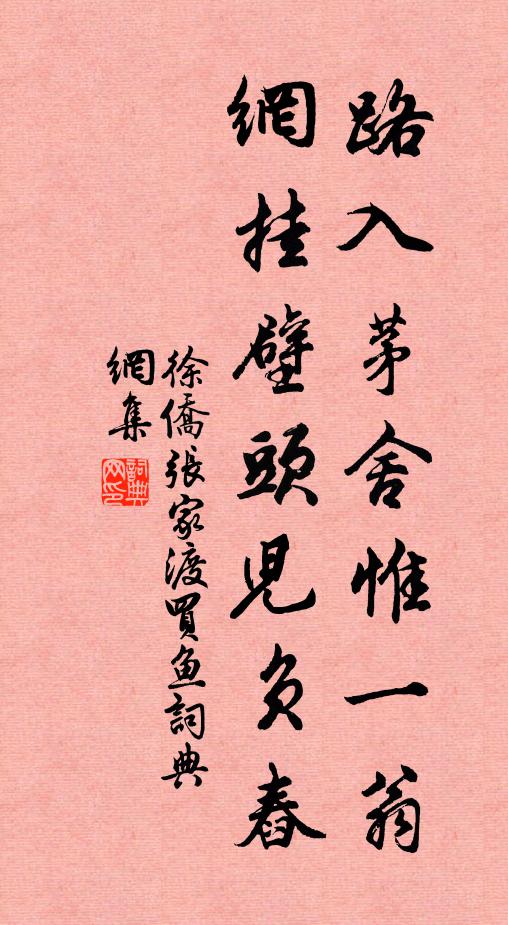 路入茅舍惟一翁
網挂壁頭児負舂
徐僑張家渡買魚詞典
網集
詞典網印